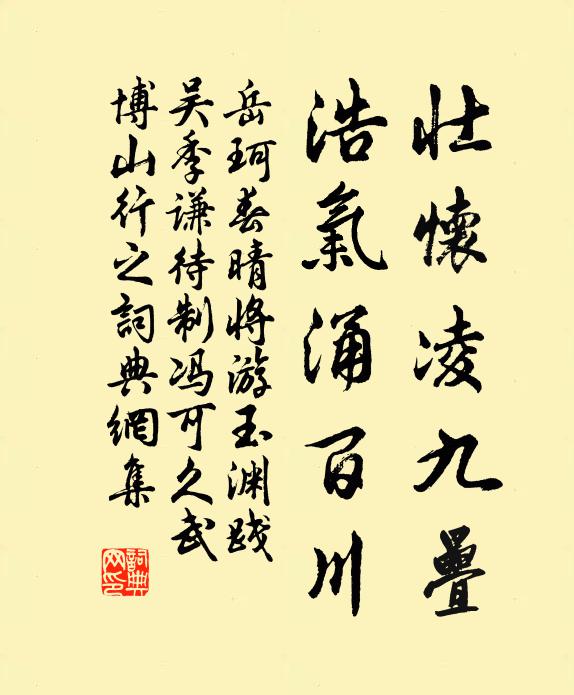 壮懷凌九疊
浩氣涌百川
岳珂春晴將游玉渊践
吴季谦待制冯可久武
博山行之詞典網集
詞典网印